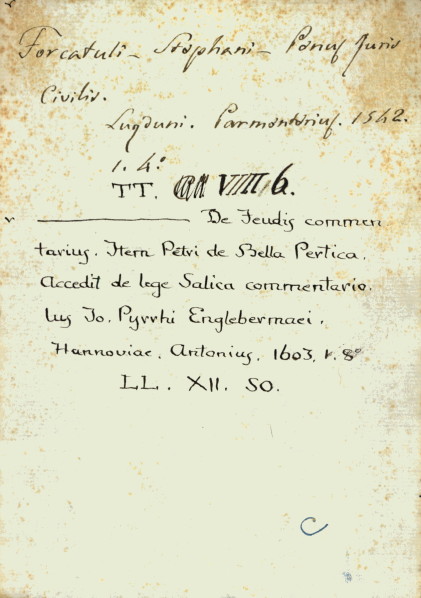 Forcatuli - Stephani - Penus Juris
Civilis.
Lugduni. Parmenterius. 1542.
1. 4.°
TT. VIIII 6.
De Feudis commen
tarius. Item Petri de Bella Pertica.
Accedit de lege Salica commentario.
lus Jo. Pyrrhi Englebermaei.
Hannoviae. Antonius. 1603. 1. 8°
LL. XII. 50.
C